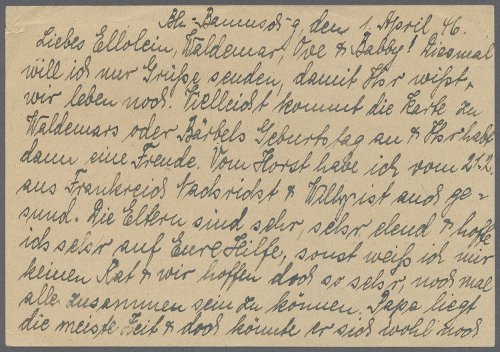 den 1. April 46.
Liebes Ellolein, Waldemar, Ove & Babby! Diesmal
will ich nur Grüße senden, damit Ihr wißt,
wir leben noch. Vielleicht kommt die Karte zu
Waldemars oder Bärbels Geburtstag an & Ihr habt
dann eine Freude. Vom Horst habe ich vom 21.2.
aus Frankreich Nachricht & Willy ist auch ge-
sund. Die Eltern sind sehr, sehr elend & hoffe
ich sehr auf Eure Hilfe, sonst weiß ich mir
keinen Rat & wir hoffen doch so sehr, noch mal
alle zusammen sein zu können. Papa liegt
die meiste Zeit & doch könnte er sich wohl noch